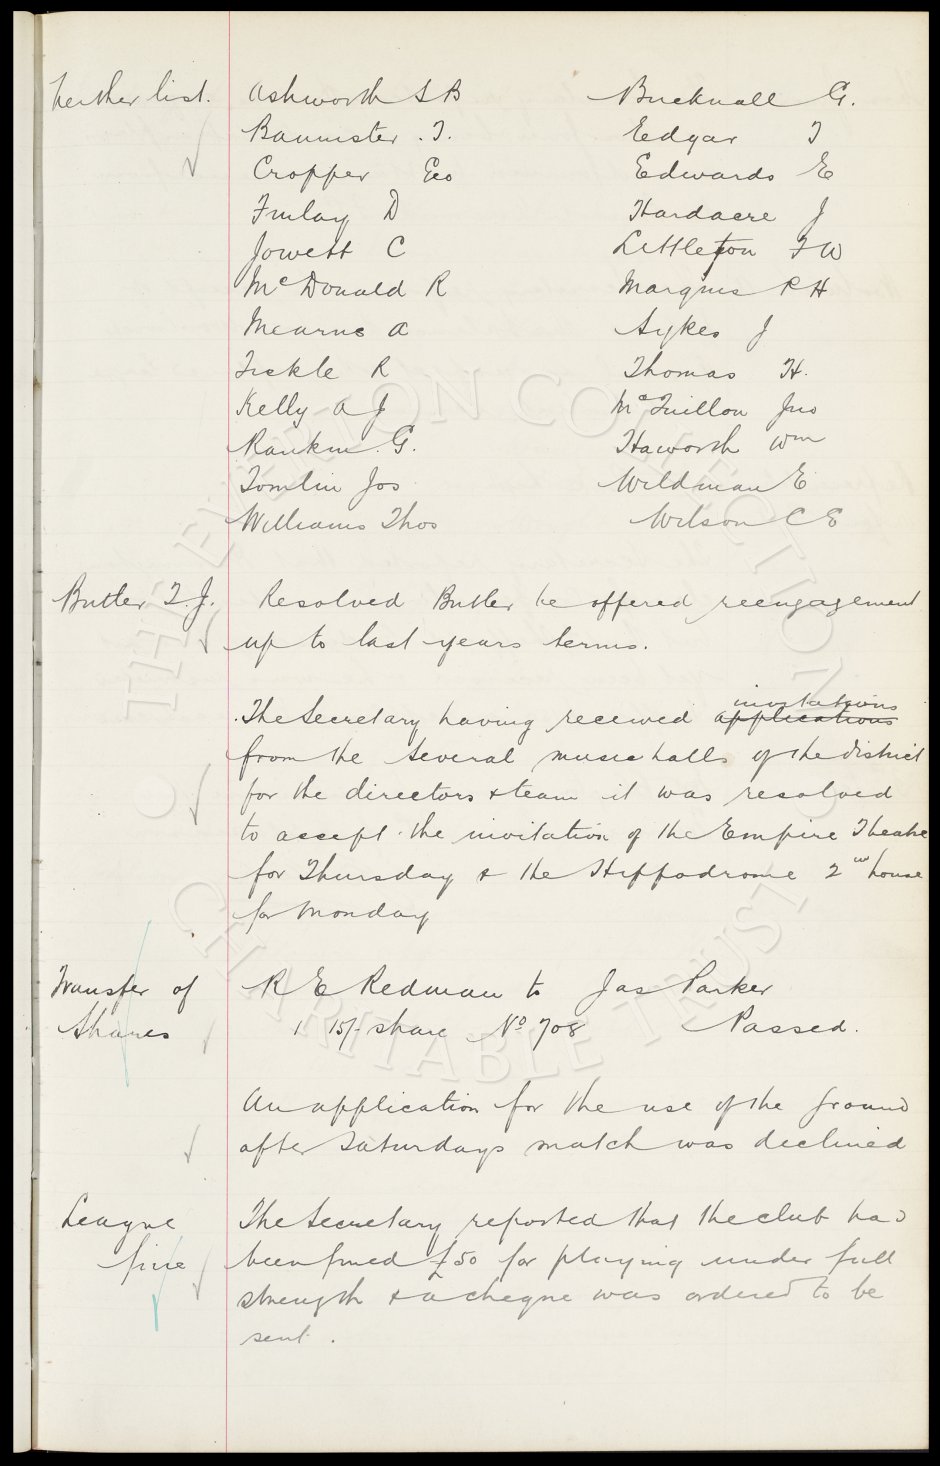 Neither list. Ashworth S B Bucknall G.
Bannister . T. Eedgar T
Cropper Geo Edwards E
Finlay D Hardacre J
Jowett C Littleton F W
McDonald R Marquis R H
Mearns A Sykes J
Tickle R Thomas H.
Kelly A J Jno
Rankin . G. Haworth Wm
Tomlin Jos Wildman E
Williams Thos Wilson C E
Butler T. J. Resolved Butler be offered reengagement
up to last years terms.
invitations
The Secretary having received applications
from the several music halls of the district
for the directors & team it was resolved
to accept the invitation of the Empire Theatre
for Thursday & the Hippodrome 2nd house
for Monday
Transfer of R E Redman to Jas Parker
Shares 1 15/- share No 708 Passed.
An application for the use of the ground
after Saturdays match was declined
League The Secretary reported that the club had
fine been fined £50 for playing under full
strength & a cheque was ordered to be
sent .
THE EVERTON COLLECTION
CHARITABLE TRUST